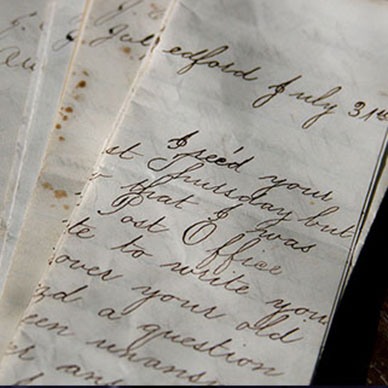 edford July 31st
I rec'd your
st Thursday but
that I was
Post Office
te to write you
over your old
nd a question
een unans